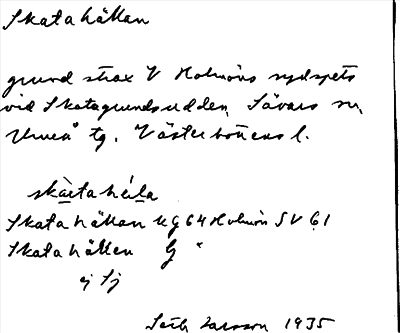 Skatahällan
grund strax V Holmöns sydspets
vid Skatagrundsudden, Sävars sn,
Umeå tg. Västerbottens l.
skàtahéla
Skatahällan kg 64 Holmön SV 61
Skatahällen G "
ej Sj
Seth Larsson 1935